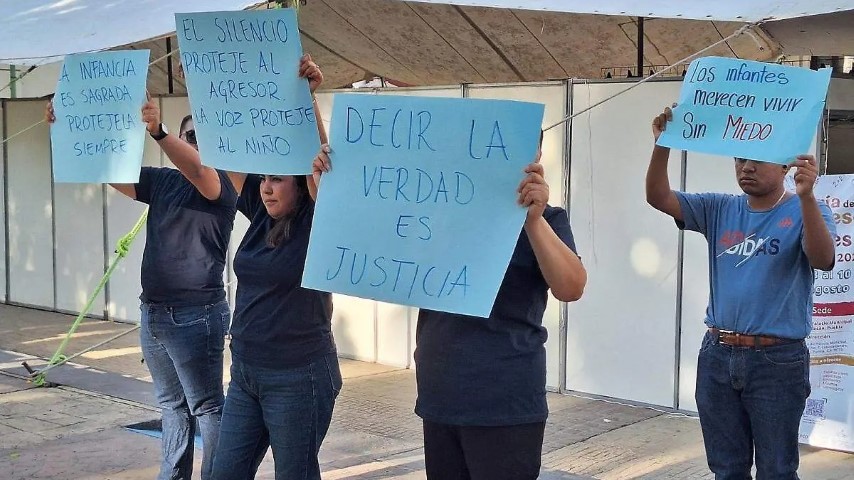 A INFANCIA
ES SAGRADA
PROTEJELA
SIEMPRE
EL SILENCIO
PROTEJE AL
AGRESOR.
LA VOZ PROTEJE
AL NIÑO
DECIR LA
VERDAD
ES
JUSTICIA
los infantes
merecen vivir
Sin MIEDO
ADIDAS
de
al 10
agosto
Sede